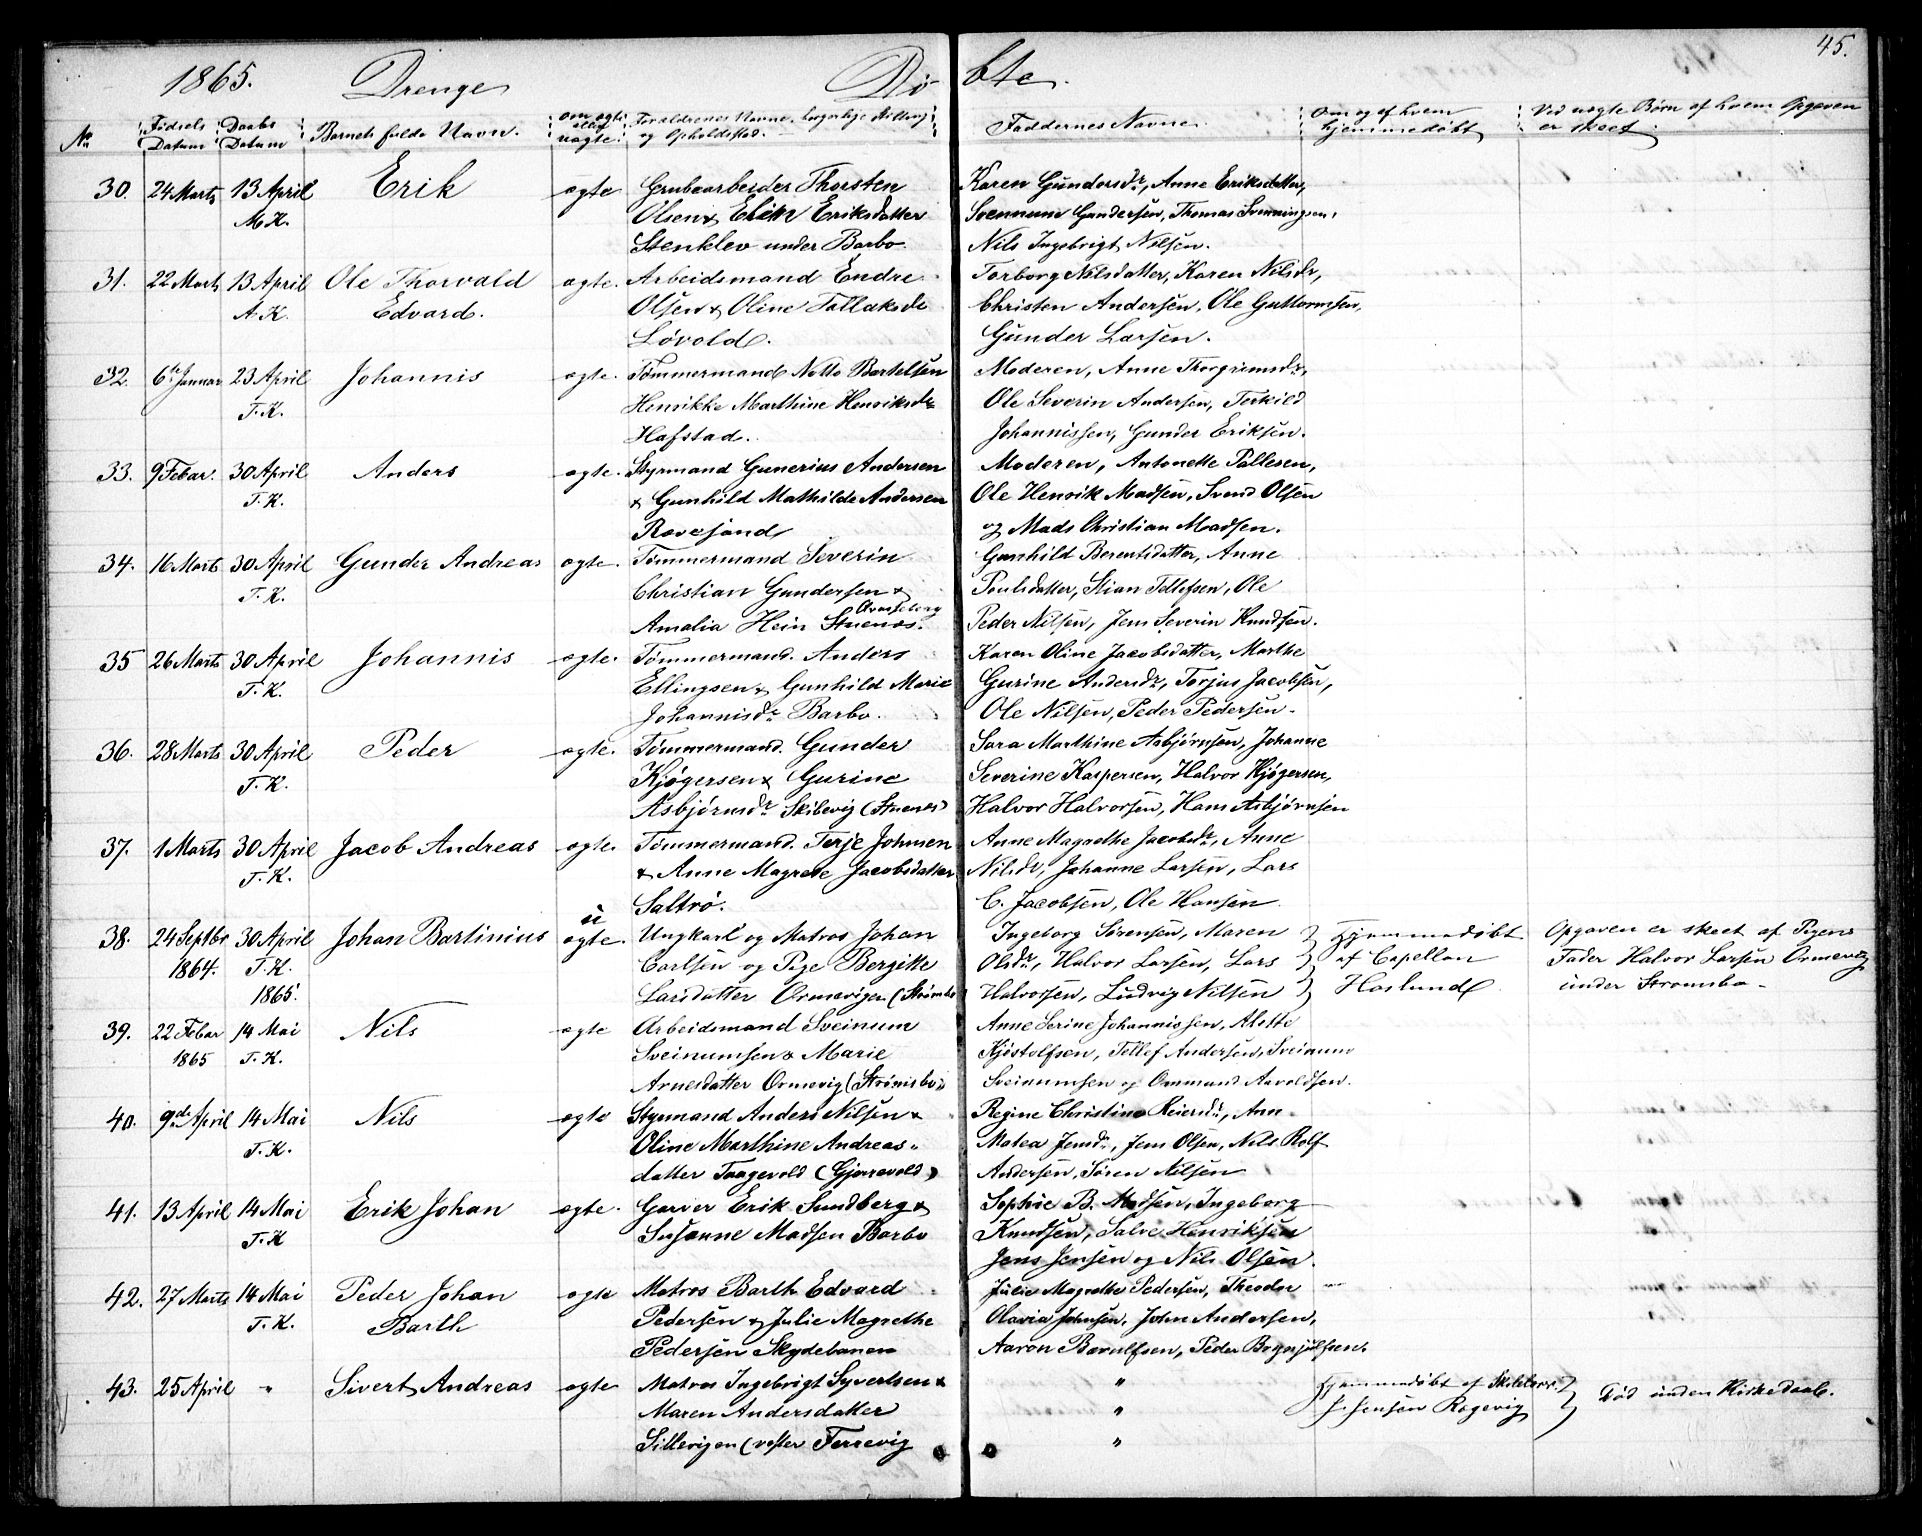 45.
1865. Drenge Dö bte.
No Fødsels Datum Daabs Datum Barnets fulde Navn. om ægte eller uægte. Forældrenes Navne, borgerlige Stilling og Opholdsted. Faddernes Navne. Om og af hvem hjemmedøbt Ved uægte Børn af hvem Opgaven er skeet.
30. 24 Marts 13 April Erik ægte Grubearbeider Thorsten Karen Gundersdr, Anne Eriksdatter,
M.K. Olsen & Elin Eriksdatter Svennum Gundersen, Thomas Svenningsen,
Stenklev under Barbo Nils Ingebrigt Nilsen.
31. 22 Marts 13 April Ole Thorvald ægte. Arbeidsmand Endre Torborg Nilsdatter, Karen Nilsdr,
A.K. Edvard. Olsen & Oline Tallaksdr Christen Andersen, Ole Guttormsen,
Løvold. Gunder Larsen.
32. 6te Januar 23 April Johannis ægte. Tømmermand Notto Bertelsen Moderen, Anne Thorgrimsdr,
T.K. Henrikke Marthine Henriksdr Ole Severin Andersen, Torkild
Hafstad. Johannissen, Gunder Eriksen.
33. 9 Febar. 30 April Anders ægte. Styrmand Gunerius Andersen Moderen, Antonette Pallesen,
T.K. & Gunhild Mathilde Andersen Ole Henrik Madsen, Svend Olsen
Rævesand og Mads Christian Madsen.
34. 16 Marts 30 April Gunder Andreas ægte. Tømmermand Severin Gunhild Berentsdatter, Anne
T.K. Christian Gundersen & Poulsdatter, Stian Tellefsen, Ole
Amalia Hein Stuenæs. Peder Nilsen, Jens Severin Knudsen.
35 26 Marts 30 April Johannis ægte. Tømmermand. Anders Karen Oline Jacobsdatter, Marthe
T.K. Ellingsen & Gunhild Marie Gurine Andersdr, Torjus Jacobsen,
Johannisdr Barbo. Ole Nilsen, Peder Pedersen.
36. 28 Marts 30 April Peder ægte. Tømmermand. Gunder Sara Marthine Asbjørnsen, Johanne
T.K. Kjøgersen & Gurine Severine Kaspersen, Halvor Kjøgersen,
Asbjørnsdr Skilevig (Stuenes) Halvor Halvorsen, Hans Asbjørnsen
37. 1 Marts 30 April Jacob Andreas ægte. Tømmermand. Terje Johnsen Anne Magrethe Jacobsdr, Anne
T.K. & Anne Magrete Jacobsdatter Nilsdr, Johanne Larsen, Lars
Saltrø. C. Jacobsen, Ole Hansen.
38. 24 Septbr 30 April Johan Bartinius u ægte. Ungkarl og Matros Johan Ingeborg Sørensen, Maren Hjemmedøbt Opgaven er skeet af Pigens
1864. T.K. Carlsen og Pige Bergitte Olsdr, Halvor Larsen, Lars af Capellan Fader Halvor Larsen Ormevig
1865. Larsdatter Ormevigen (Strømbo Halvorsen, Ludvig Nilsen Haslund. under Stromsbo -
39. 22 Febar 14 Mai Nils ægte Arbeidsmand Sveinum Anne Serine Johannissen, Alette
1865 T.K. Sveinumsen & Marie Kjøstolfsen, Tellef Andersen, Sveinum
Arnesdatter Ormevig (Strømsbo) Sveinumsen og Ommund Aavoldsen.
40. 9de April 14 Mai Nils ægte Styrmand Anders Nilsen & Regine Christine Reiersdr, Ann
T.K. Oline Marthine Andreas- Matea Jensdr, Jens Olsen, Nils Rolf
datter Taagevold (Gjerrevold) Andersen, Søren Nilsen
41. 13 April 14 Mai Erik Johan ægte. Garver Erik Sundberg & Sophie B. Madsen, Ingeborg
T.K Susanne Madsen Barbo Knudsen, Salve Henriksen
Jens Jensen og Nils Olsen.
42. 27 Marts 14 Mai Peder Johan ægte Matros Barth Edvard Julie Magrethe Pedersen, Theodor
T.K. Barth Pedersen & Julie Magrethe Olavia Johnsen, John Andersen,
Pedersen Skydebanen Aaron Bærulfsen, Peder Brynjulfsen.
43. 25 April " Sivert Andreas ægte Matros Ingebrigt Syvertsen & " Hjemmedøbt af
Maren Andersdatter " J. Jensen Rægevig Død uden Kirkedaab.
Sillevigen (vester Terrevig "